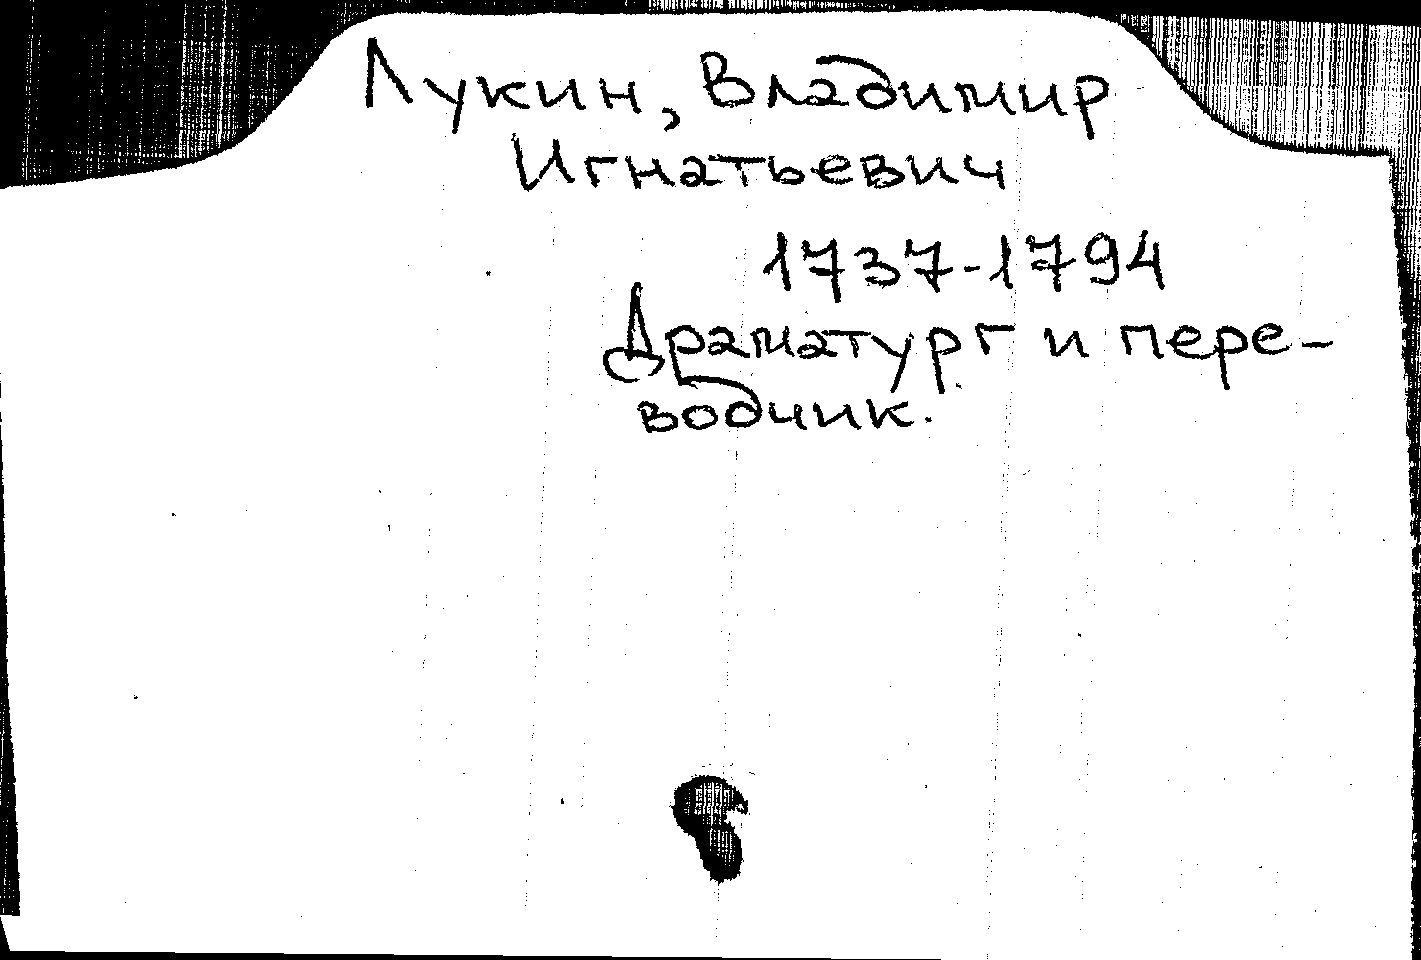 Лукин, Владимир
Игнатьевич
1737-1794
Драматург и пере-
водчик.